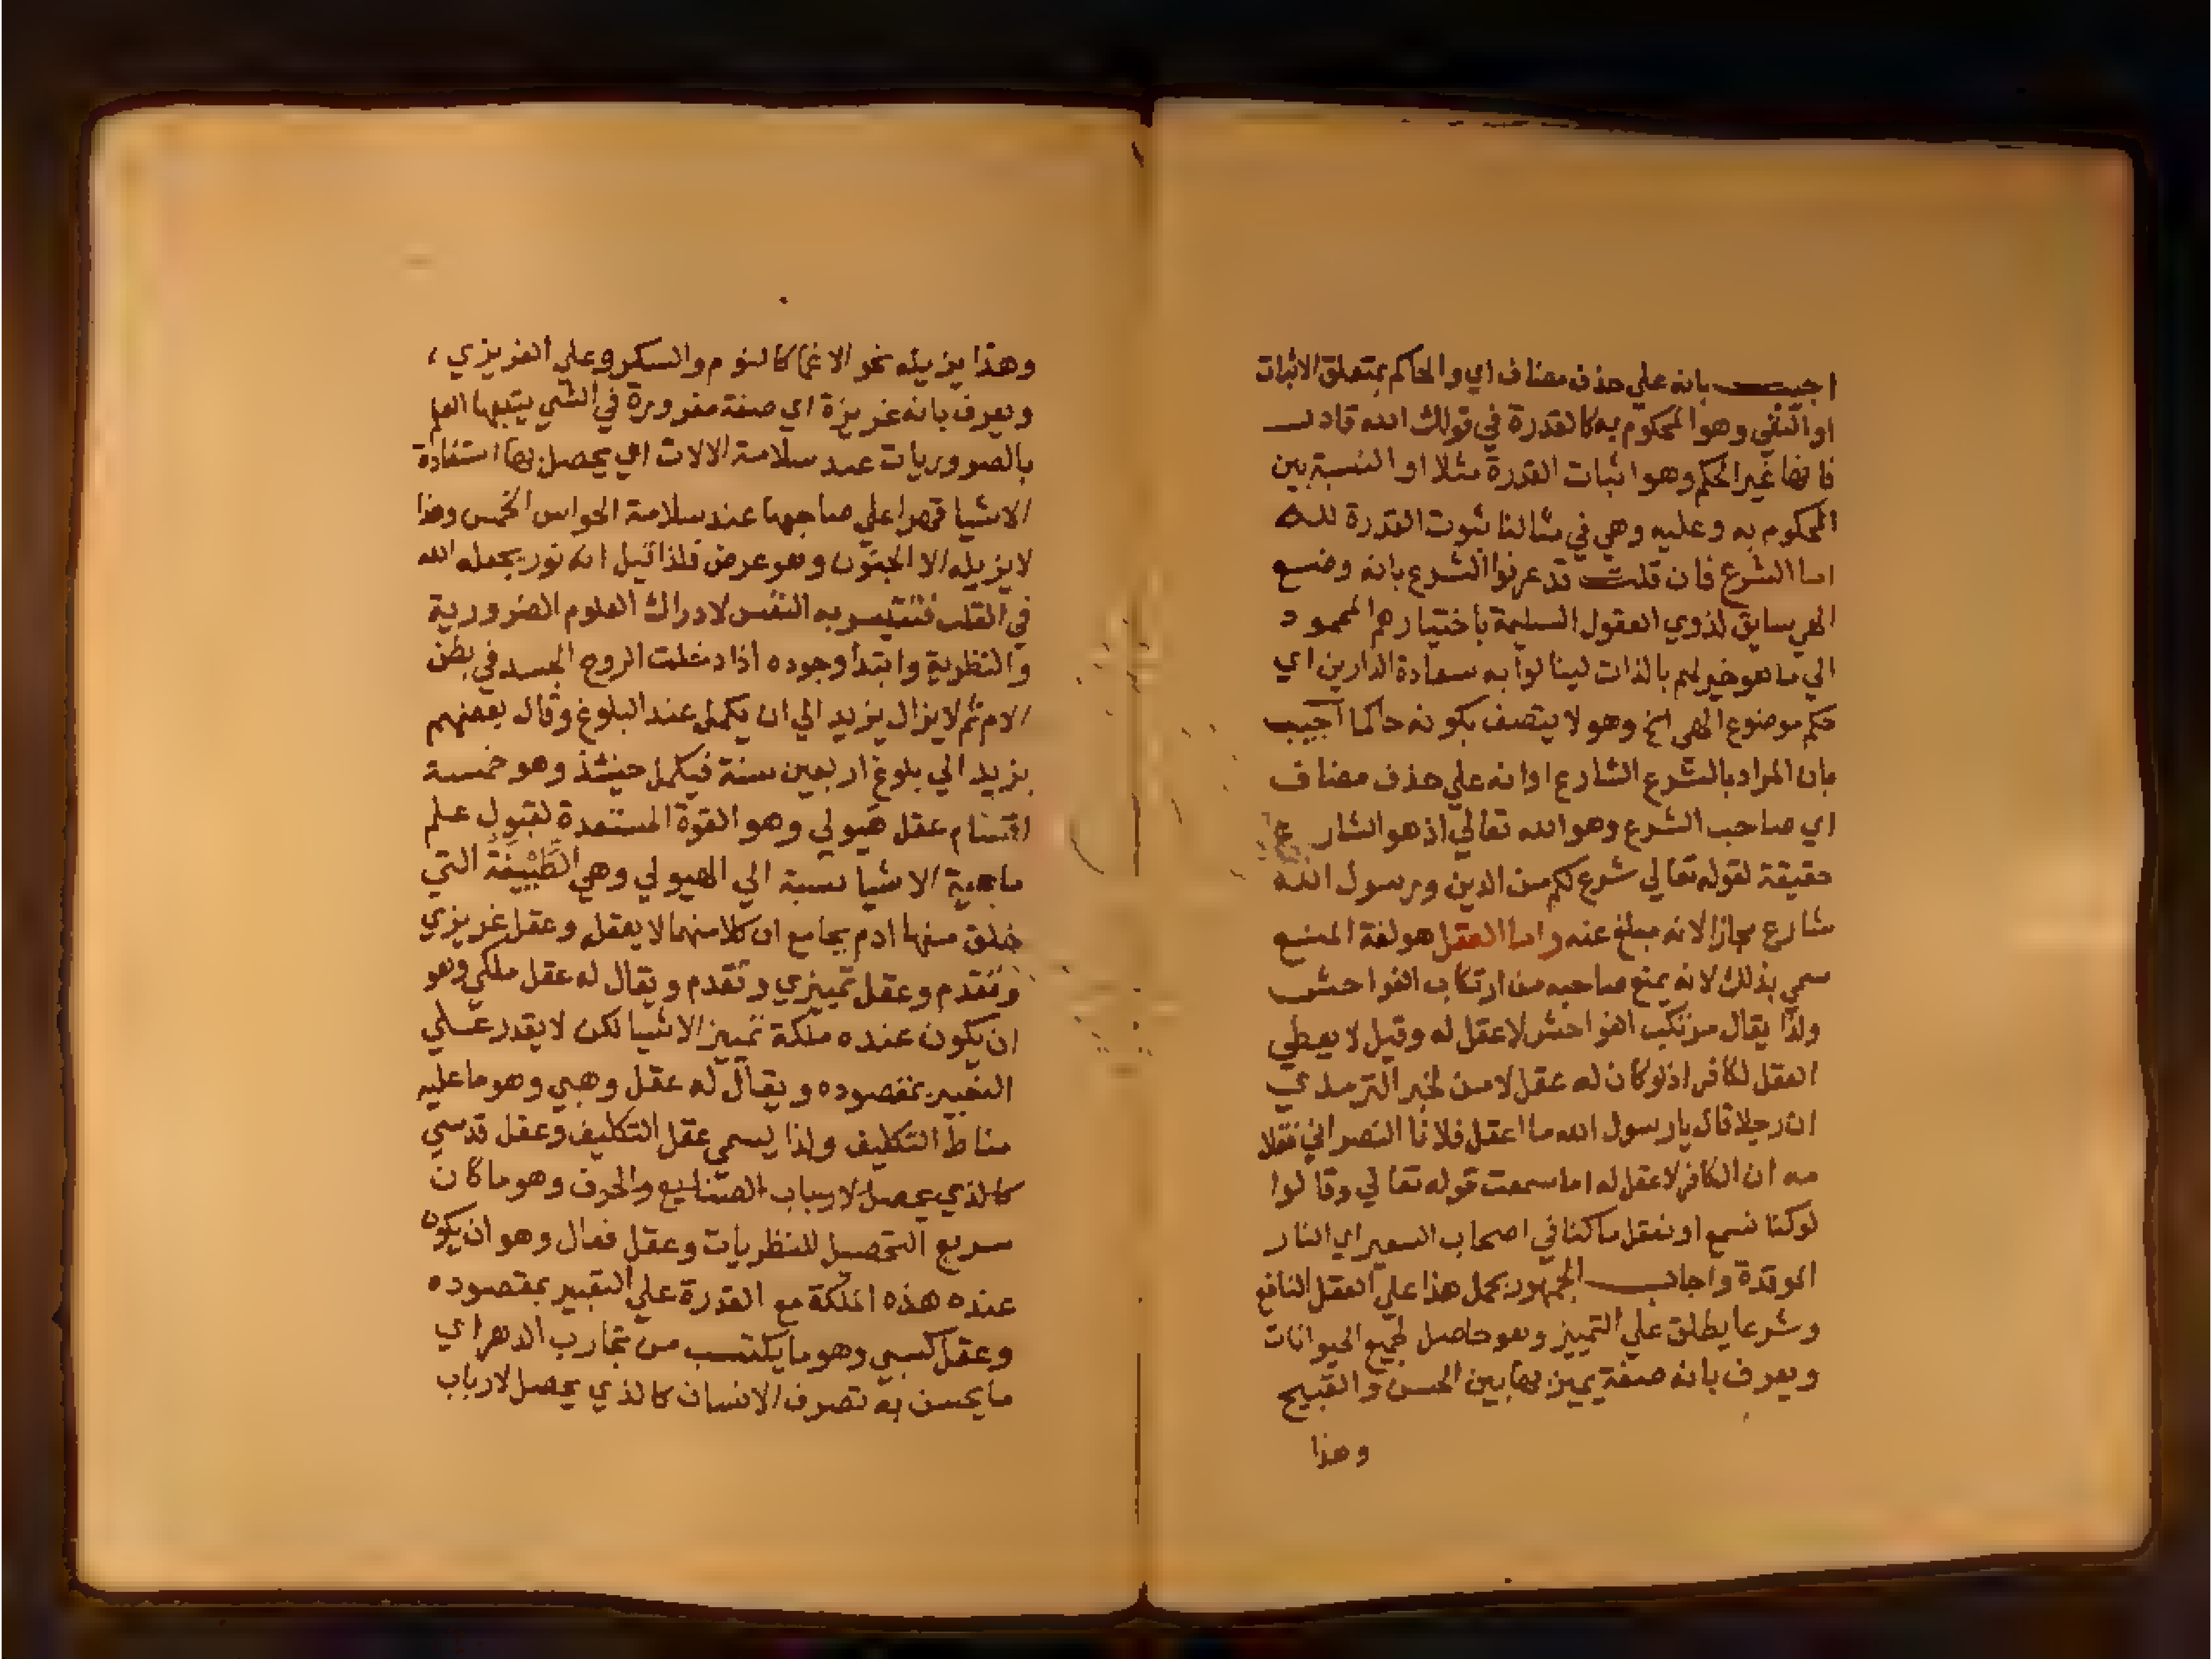 اجيب بانه علي حذف مضاف اي والحاكم بمتعلق الاثبات
او النفي وهو المحكوم به كالقدرة في قولك الله قادر
فانها غير الحكم وهو اثبات القدرة مثلا او النسبة بين
المحكوم به وعليه وهي في مثالنا ثبوت القدرة لله
اما الشرع فان قلت قد عرفوا الشرع بانه وضع
الهي سايق لذوي العقول السليمة باختيارهم المحمود
الي ما هو خير لهم بالذات لينالوا به سعادة الدارين اي
حكم موضوع الهي الخ وهو لا يتصف بكونه حاكما اجيب
بان المراد بالشرع الشارع او انه علي حذف مضاف
اي صاحب الشرع وهو الله تعالي اذ هو الشارع
حقيقة لقوله تعالي شرع لكم من الدين ورسول الله
شارع مجازا لانه مبلغ عنه واما العقل هو لغة المنع
سمي بذلك لانه يمنع صاحبه من ارتكاب الفواحش
ولذا يقال مرتكب الفواحش لا عقل له وقيل لا يعطي
العقل لكافر اذ لو كان له عقل لامن لخبر الترمذي
ان رجلا قال يا رسول الله ما اعقل فلانا النصراني فقال
مه ان الكافر لا عقل له اما سمعت قوله تعالي وقالوا
لو كنا نسمع او نعقل ما كنا في اصحاب السعير اي النار
الموقدة واجاب الجمهور بحمل هذا علي العقل النافع
وشرعا يطلق علي التمييز وهو حاصل لجميع الحيوانات
ويعرف بانه صفة يميز بها بين الحسن والقبيح
وهذا
وهذا يزيله نحو الاغما كالنوم والسكر وعلي الغريزي
ويعرف بانه غريزة اي صفة مغروزة في الشي يتبعها العلم
بالضروريات عند سلامة الالات اي يحصل بها استفادة
الاشيا قهرا علي صاحبها عند سلامة الحواس الخمس وهذا
لا يزيله الا الجنون وهو عرض فلذا قيل انه نور يجعله الله
في القلب به النفس لادراك العلوم الضرورية
والنظرية وابتدا وجوده اذا دخلت الروح الجسد في بطن
الام ثم لا يزال يزيد الي ان يكمل عند البلوغ وقال بعضهم
يزيد الي بلوغ اربعين سنة فيكمل حينئذ وهو خمسة
اقسام عقل هيولي وهو القوة المستعدة لقبول علم
ماهية الاشيا نسبة الي الهيولي وهي التي
خلق منها ادم بجامع ان كلا منهما لا يعقل وعقل غريزي
وتقدم وعقل تمييزي وتقدم ويقال له عقل ملكي وهو
ان يكون عنده ملكة تمييز الاشيا لكن لا يقدر علي
التعبير بمقصوده ويقال له عقل وهبي وهو ما عليه
مناط التكليف ولذا يسمي عقل التكليف وعقل قدسي
كالذي يحصل لارباب الصنايع والحرف وهو ما كان
سريع التحصيل للنظريات وعقل فعال وهو ان يكون
عنده هذه الملكة مع القدرة علي التعبير بمقصوده
وعقل كسبي وهو ما يكتسب من تجارب الدهر اي
ما يحسن به تصرف الانسان كالذي يحصل لارباب